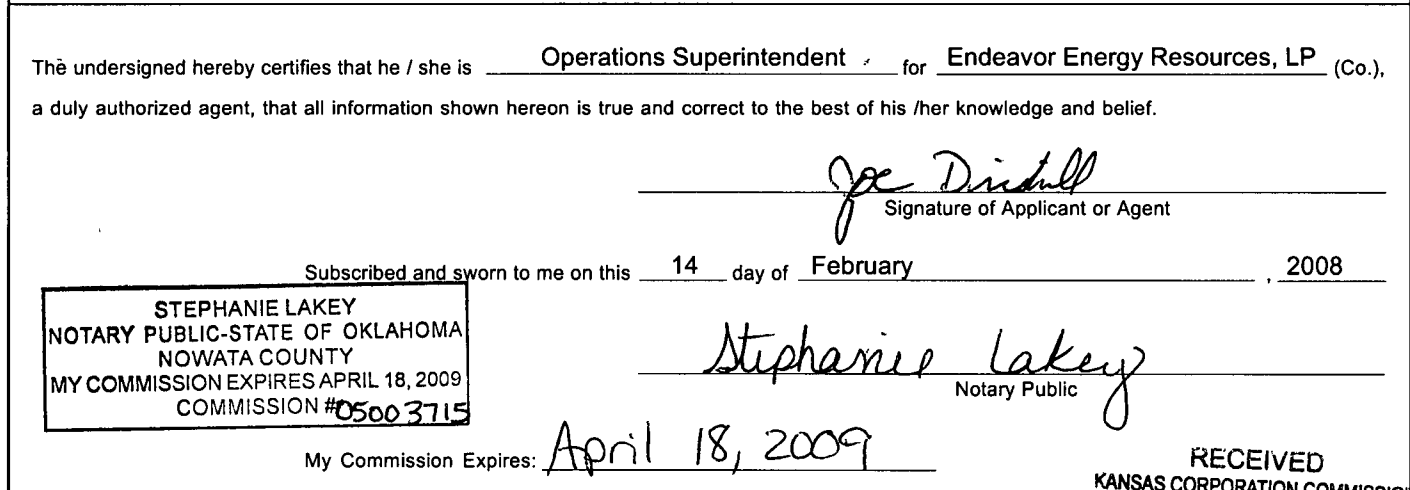 The undersigned hereby certifies that he / she is Operations Superintendent for Endeavor Energy Resources, LP (Co.),
a duly authorized agent, that all information shown hereon is true and correct to the best of his /her knowledge and belief.
Joe
Signature of Applicant or Agent
Subscribed and sworn to me on this 14 day of February , 2008
STEPHANIE LAKEY
NOTARY PUBLIC-STATE OF OKLAHOMA
NOWATA COUNTY
MY COMMISSION EXPIRES APRIL 18, 2009
COMMISSION #05003715
Stephanie Lakey
Notary Public
My Commission Expires: April 18, 2009
RECEIVED
KANSAS CORPORATION